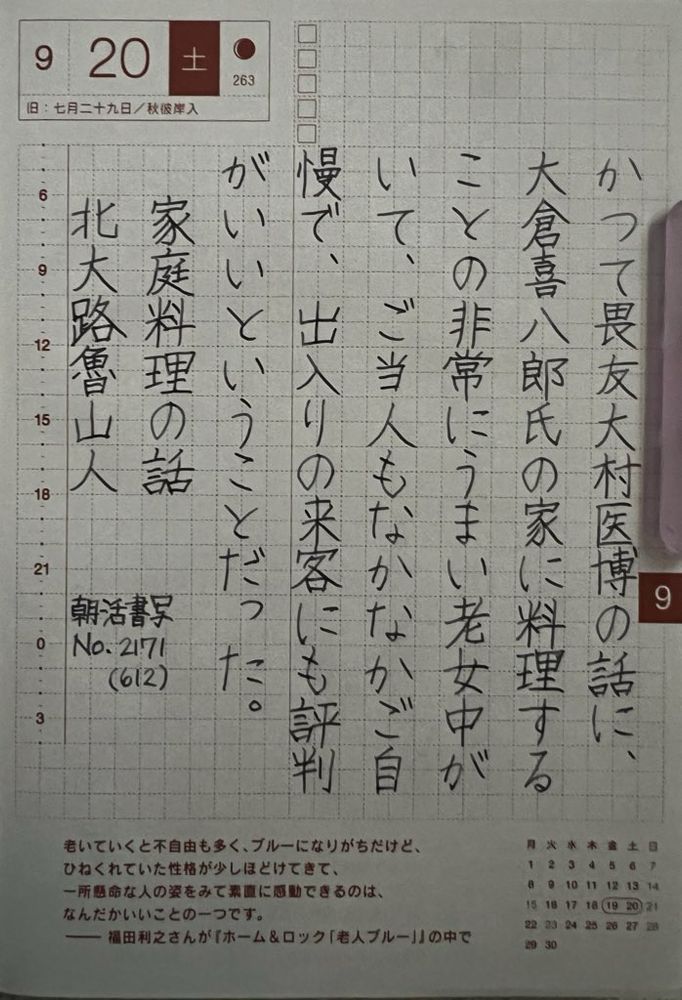 9 20 土
263
旧：七月二十九日／秋彼岸入
かつて畏友大村医博の話に、
大倉喜八郎氏の家に料理する
ことの非常にうまい老女中が
いて、ご当人もなかなかご自
慢で、出入りの来客にも評判
がいいということだった。
家庭料理の話
北大路魯山人
朝活書写
No.2171
(612)
6
9
12
15
18
21
0
3
9
老いていくと不自由も多く、ブルーになりがちだけど、
ひねくれていた性格が少しほどけてきて、
一所懸命な人の姿をみて素直に感動できるのは、
なんだかいいことの一つです。
―― 福田利之さんが『ホーム＆ロック「老人ブルー」』の中で
月 火 水 木 金 土 日
1 2 3 4 5 6 7
8 9 10 11 12 13 14
15 16 17 18 19 20 21
22 23 24 25 26 27 28
29 30